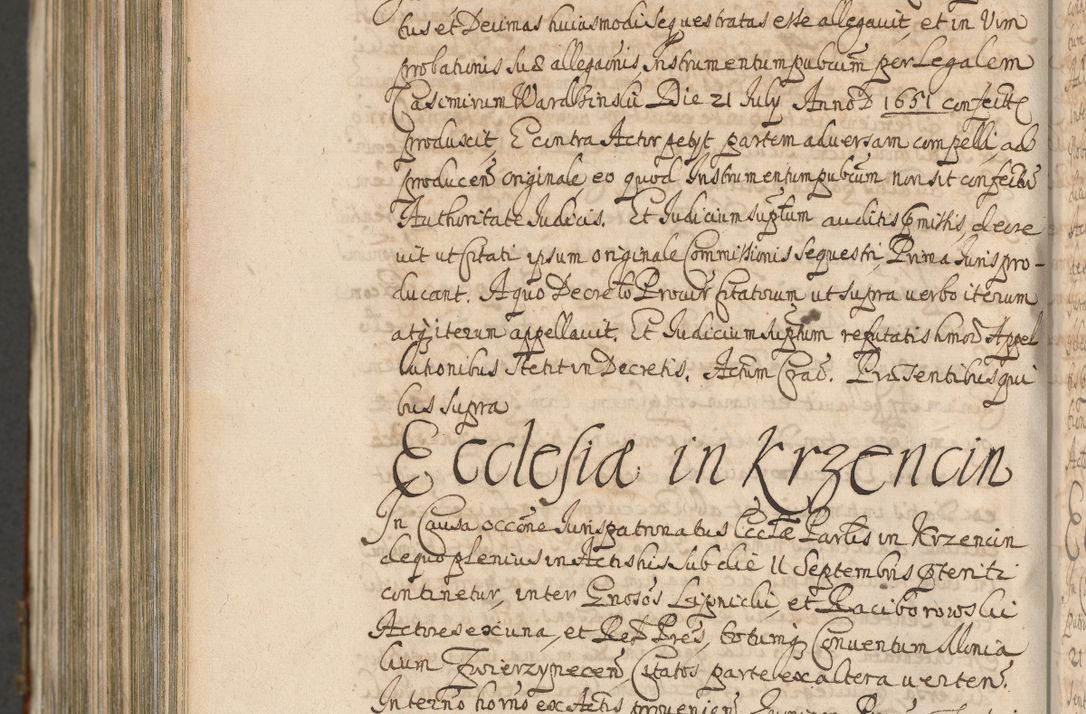 tus et Decimas huiusmodi sequestratas esse allegavit, et in Vim
probationis suæ allegaōnis, Instrumentum pubcūm per Legalem
Casimirum Waralbinski Die 21 July Anno D 1651 confectē
produxit, E contra Actor petyt partem adversam compelli, ad
producen̄ originale, eo quod Instrumentum pubcūm non sit confectū
Authoritate Judicis. Et Judicium supt̄um auditis p̄missis, decre
vit ut Citati ipsum originale Commissionis Sequestri, Prima Juris pro-
ducant. A quo Decreto Procūr Citatorum ut supra verbo iterum
atq̨ iterum appellavit. Et Judicium supt̄um reputatis hmōi Appel
lationibus stetit in Decretis. Actūm Crac̄. Præsentibus qui
bus supra
Ecclesiæ in Krzencin
In Causa occōne Jurispatronatus Ecctæ Partis in Krzencin
de quo plenius in Actis his sub die 11 Septembris p̄teriti
continetur, inter Gnosōs Lipnicki, et Raciborowski
Actores ex una, et Rel̄ Pres̄, totumq̨ Conventum Monia
lium Zwierzynecen̄ Citatos parte ex altera verten̄.
In termo hornō ex Actis provenien̄